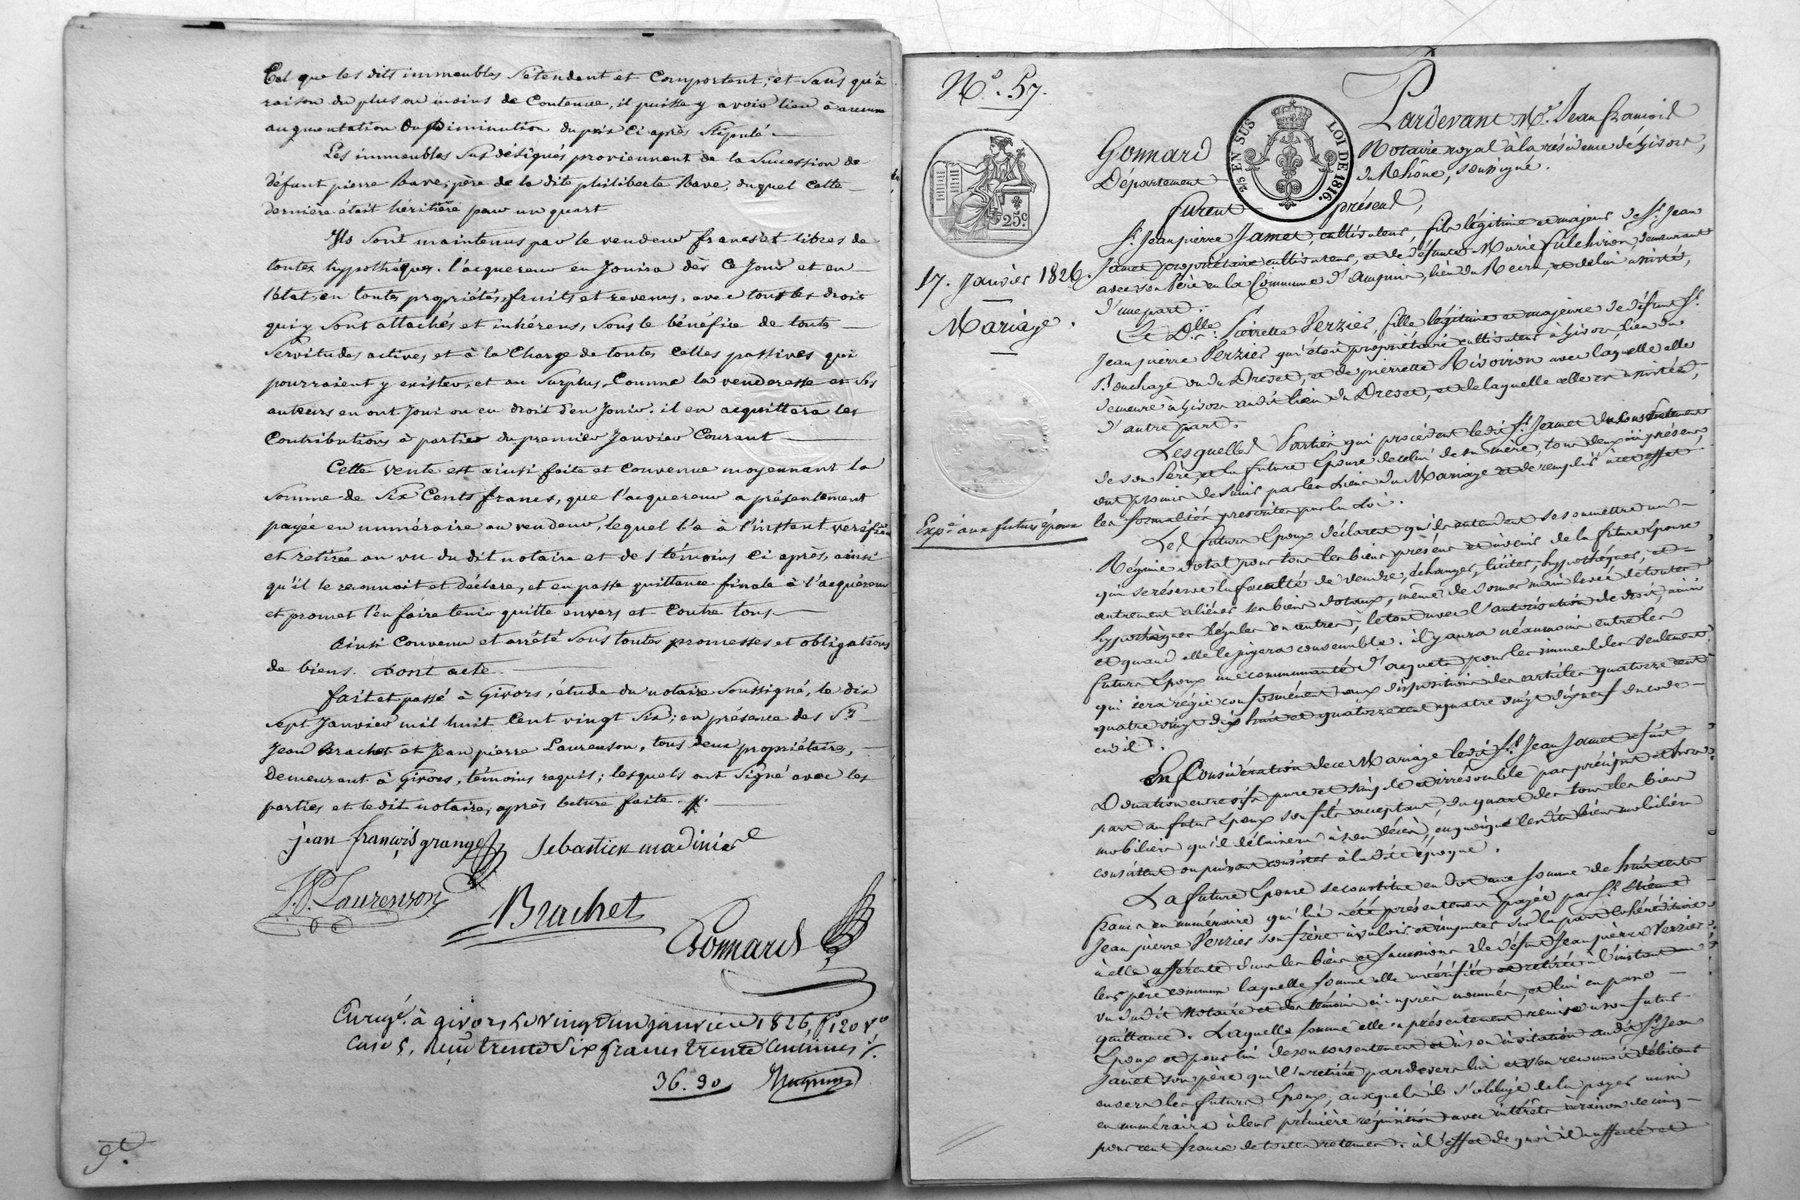 tel que les dits immeubles s'étendent et comportent, et sans qu'à
raison du plus ou moins de contenue, il puisse y avoir lieu à aucune
augmentation ou diminution du prix ci après stipulé.
Les immeubles sus désignés proviennent de la succession de
défunt pierre Bave, père de la dite philiberte Bave, duquel cette
dernière était héritière pour un quart
Ils sont maintenus par le vendeur francs et libres de
toutes hypothéques. l'acquereur en jouira dès ce jour et en
l'état, en toutes propriétés, fruits et revenus, avec tous les droits
qui y sont attachés et inhérens, sous le bénéfice de toutes
servitudes actives et à la charge de toutes celles passives qui
pourraient y exister, et au surplus, comme la venderesse et ses
auteurs en ont joui ou eu droit d'en jouir. il en acquittera les
contributions à partir du premier janvier courant
Cette vente est ainsi faite et convenue moyennant la
somme de six cents francs, que l'acquereur a présentement
payée en numéraire au vendeur, lequel l'a à l'instant verifiée
et retirée au vu du dit notaire et des témoins ci après, ainsi
qu'il le reconnait et déclare, et en passe quittance finale à l'acquéreur
et promet l'en faire tenir quitte envers et contre tous.
Ainsi convenu et arrêté sous toutes promesses et obligations
de biens. Dont acte.
fait et passé à Givors, étude du notaire soussigné, le dix
sept janvier mil huit cent vingt six; en présence des Srs
Jean Brachet et Jean pierre Laurenson, tous deux propriétaire,
demeurant à Givors, témoins requis; lesquels ont signé avec les
parties et le dit notaire, après lecture faite.
jean françois grange sebastien madinier
J.P. Laurenson
Brachet
Gonnard
Enregé. à givors le vingt un janvier 1826, fo 120 vo
case 5, reçu trente six francs trente centimes
36.30
No. 57.
Pardevant Me. Jean François
Gonnard Notaire royal à la résidence de Givors,
25 EN SUS LOI DE 1816.
Département du Rhône, soussigné.
25c
furent présens,
Sr. Jean pierre Jamet, cultivateur, fils légitime et majeur de Sr. Jean
17. Janvier 1826.
Jamet propriétaire cultivateur, et de défunte Marie Fulchiron, demeurant
avec son père en la Commune d'Ampuis, lieu du Recru, et de lui assisté,
d'une part.
Mariage.
Et Dlle. Pierrette Verzier, fille légitime et majeure de défunt Sr.
Jean pierre Verzier qui était propriétaire cultivateur à Givors lieu du
et de pierrette Rivoiron avec laquelle elle
demeure à Givors au dit lieu du Drevet, et de laquelle elle est assistée,
d'autre part.
Lesquelles Parties qui procèdent le dit Sr. Jamet du consentement
de son père, et la future Epouse de celui de sa mère, tous deux ici présens,
ont promis de s'unir par les liens du Mariage et de remplir à cet effet
les formalités prescrites par la Loi.
Expé. aux futurs époux
Les futurs Epoux déclarent qu'ils entendent se soumettre au
Régime dotal pour tous les biens présens et à venir de la future Epouse
qui se réserve la faculté de vendre, échanger, liciter, hypothéquer, et
autrement aliéner ses biens dotaux, même de donner main levée de toutes
hypothèques légales ou autres, le tout avec l'autorisation de droit, ainsi
et quand elle le jugera convenable. il y aura néanmoins entre les
futurs Epoux une communauté d'acquets pour les immeubles seulement
qui sera régie conformément aux dispositions des articles quatorze cent
quatre vingt dix huit et quatorze cent quatre vingt dix neuf du code
civil.
En Considération de ce Mariage le dit Sr. Jean Jamet a fait
Donation entre vifs pure et simple et irrévocable par préciput et hors
part au futur Epoux son fils acceptant, du quart des tous les biens
mobiliers qu'il délaissera à son décès, en quoique les dits biens mobiliers
consistent ou puissent consister à la dite époque.
La future Epouse se constitue en dot une somme de huit cents
francs en numéraire qui lui a été présentement payée par Sr. Etienne
Jean pierre Verzier son frère à valoir et imputer sur la part héréditaire
à elle afférente dans les biens et succession de défunt Jean pierre Verzier
leur père commun laquelle somme elle a vérifiée et retirée à l'instant au
vu du dit Notaire et des témoins ci après nommés, et lui en passe
quittance. Laquelle somme elle a présentement remise à son futur
Epoux et pour lui de son consentement et à son invitation au dit Sr. Jean
Jamet son père qui l'a retirée pardevers lui et s'en reconnait débiteur
envers les futurs Epoux, auxquels il s'oblige de la payer aussi
en numéraire à leur première réquisition avec intérêts à raison de cinq
pour cent francs de toute retenue. à l'effet de quoi il affecte et